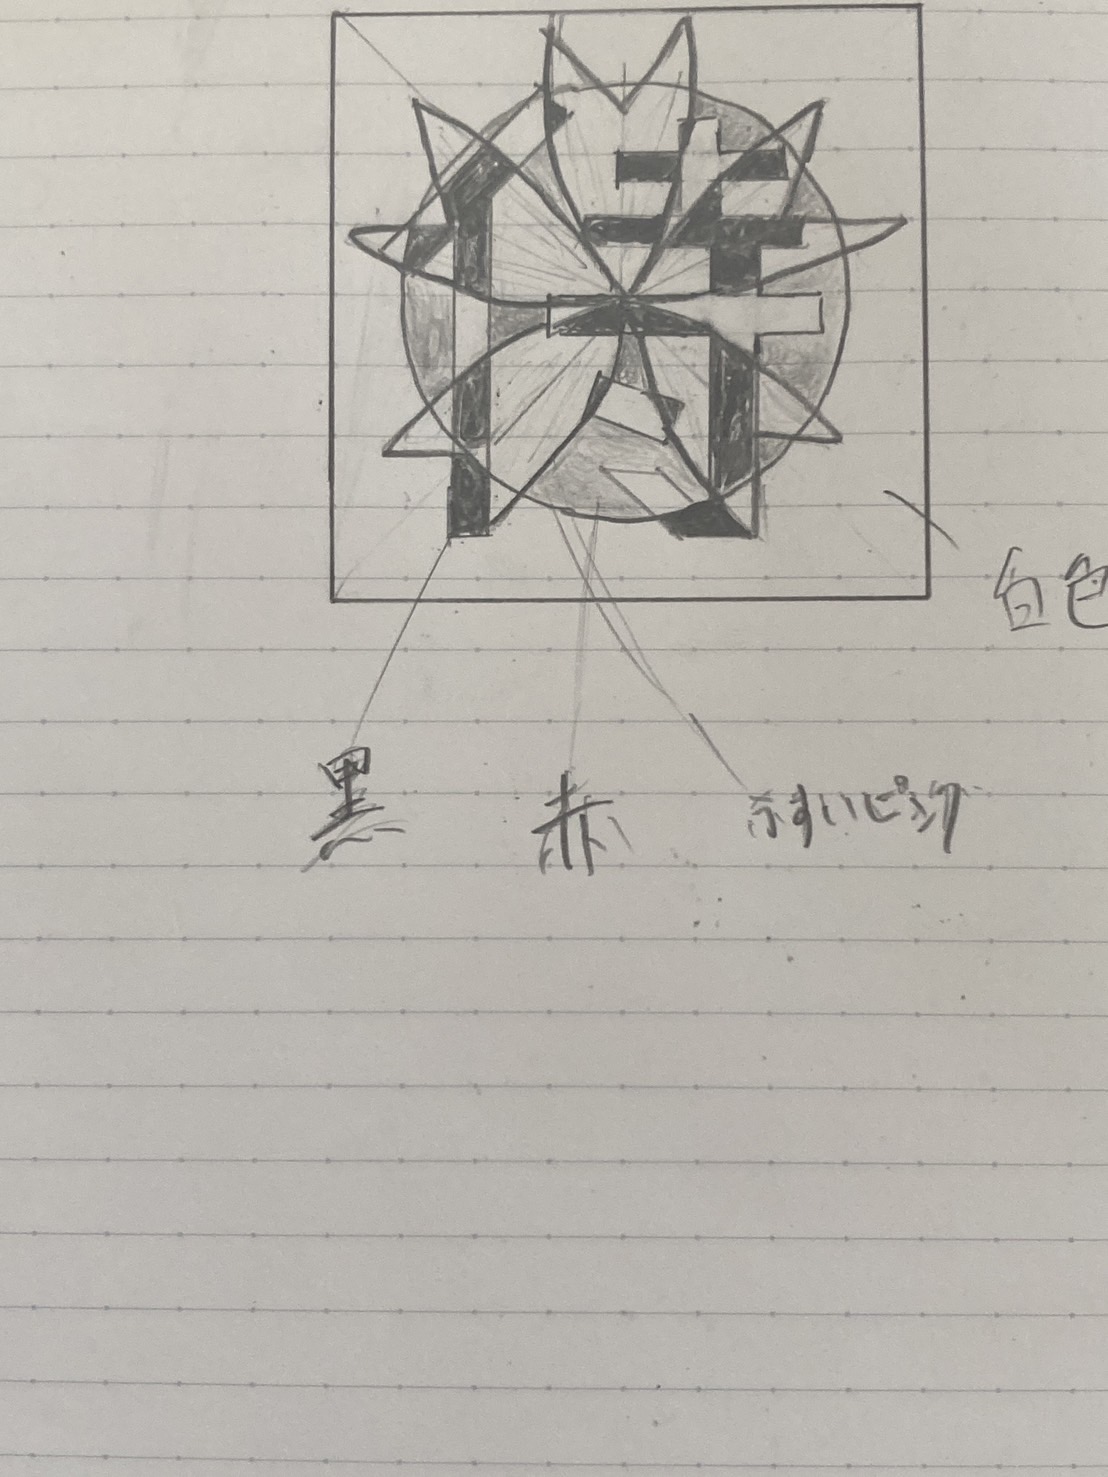 侍
白色
黒 赤 うすいピンク